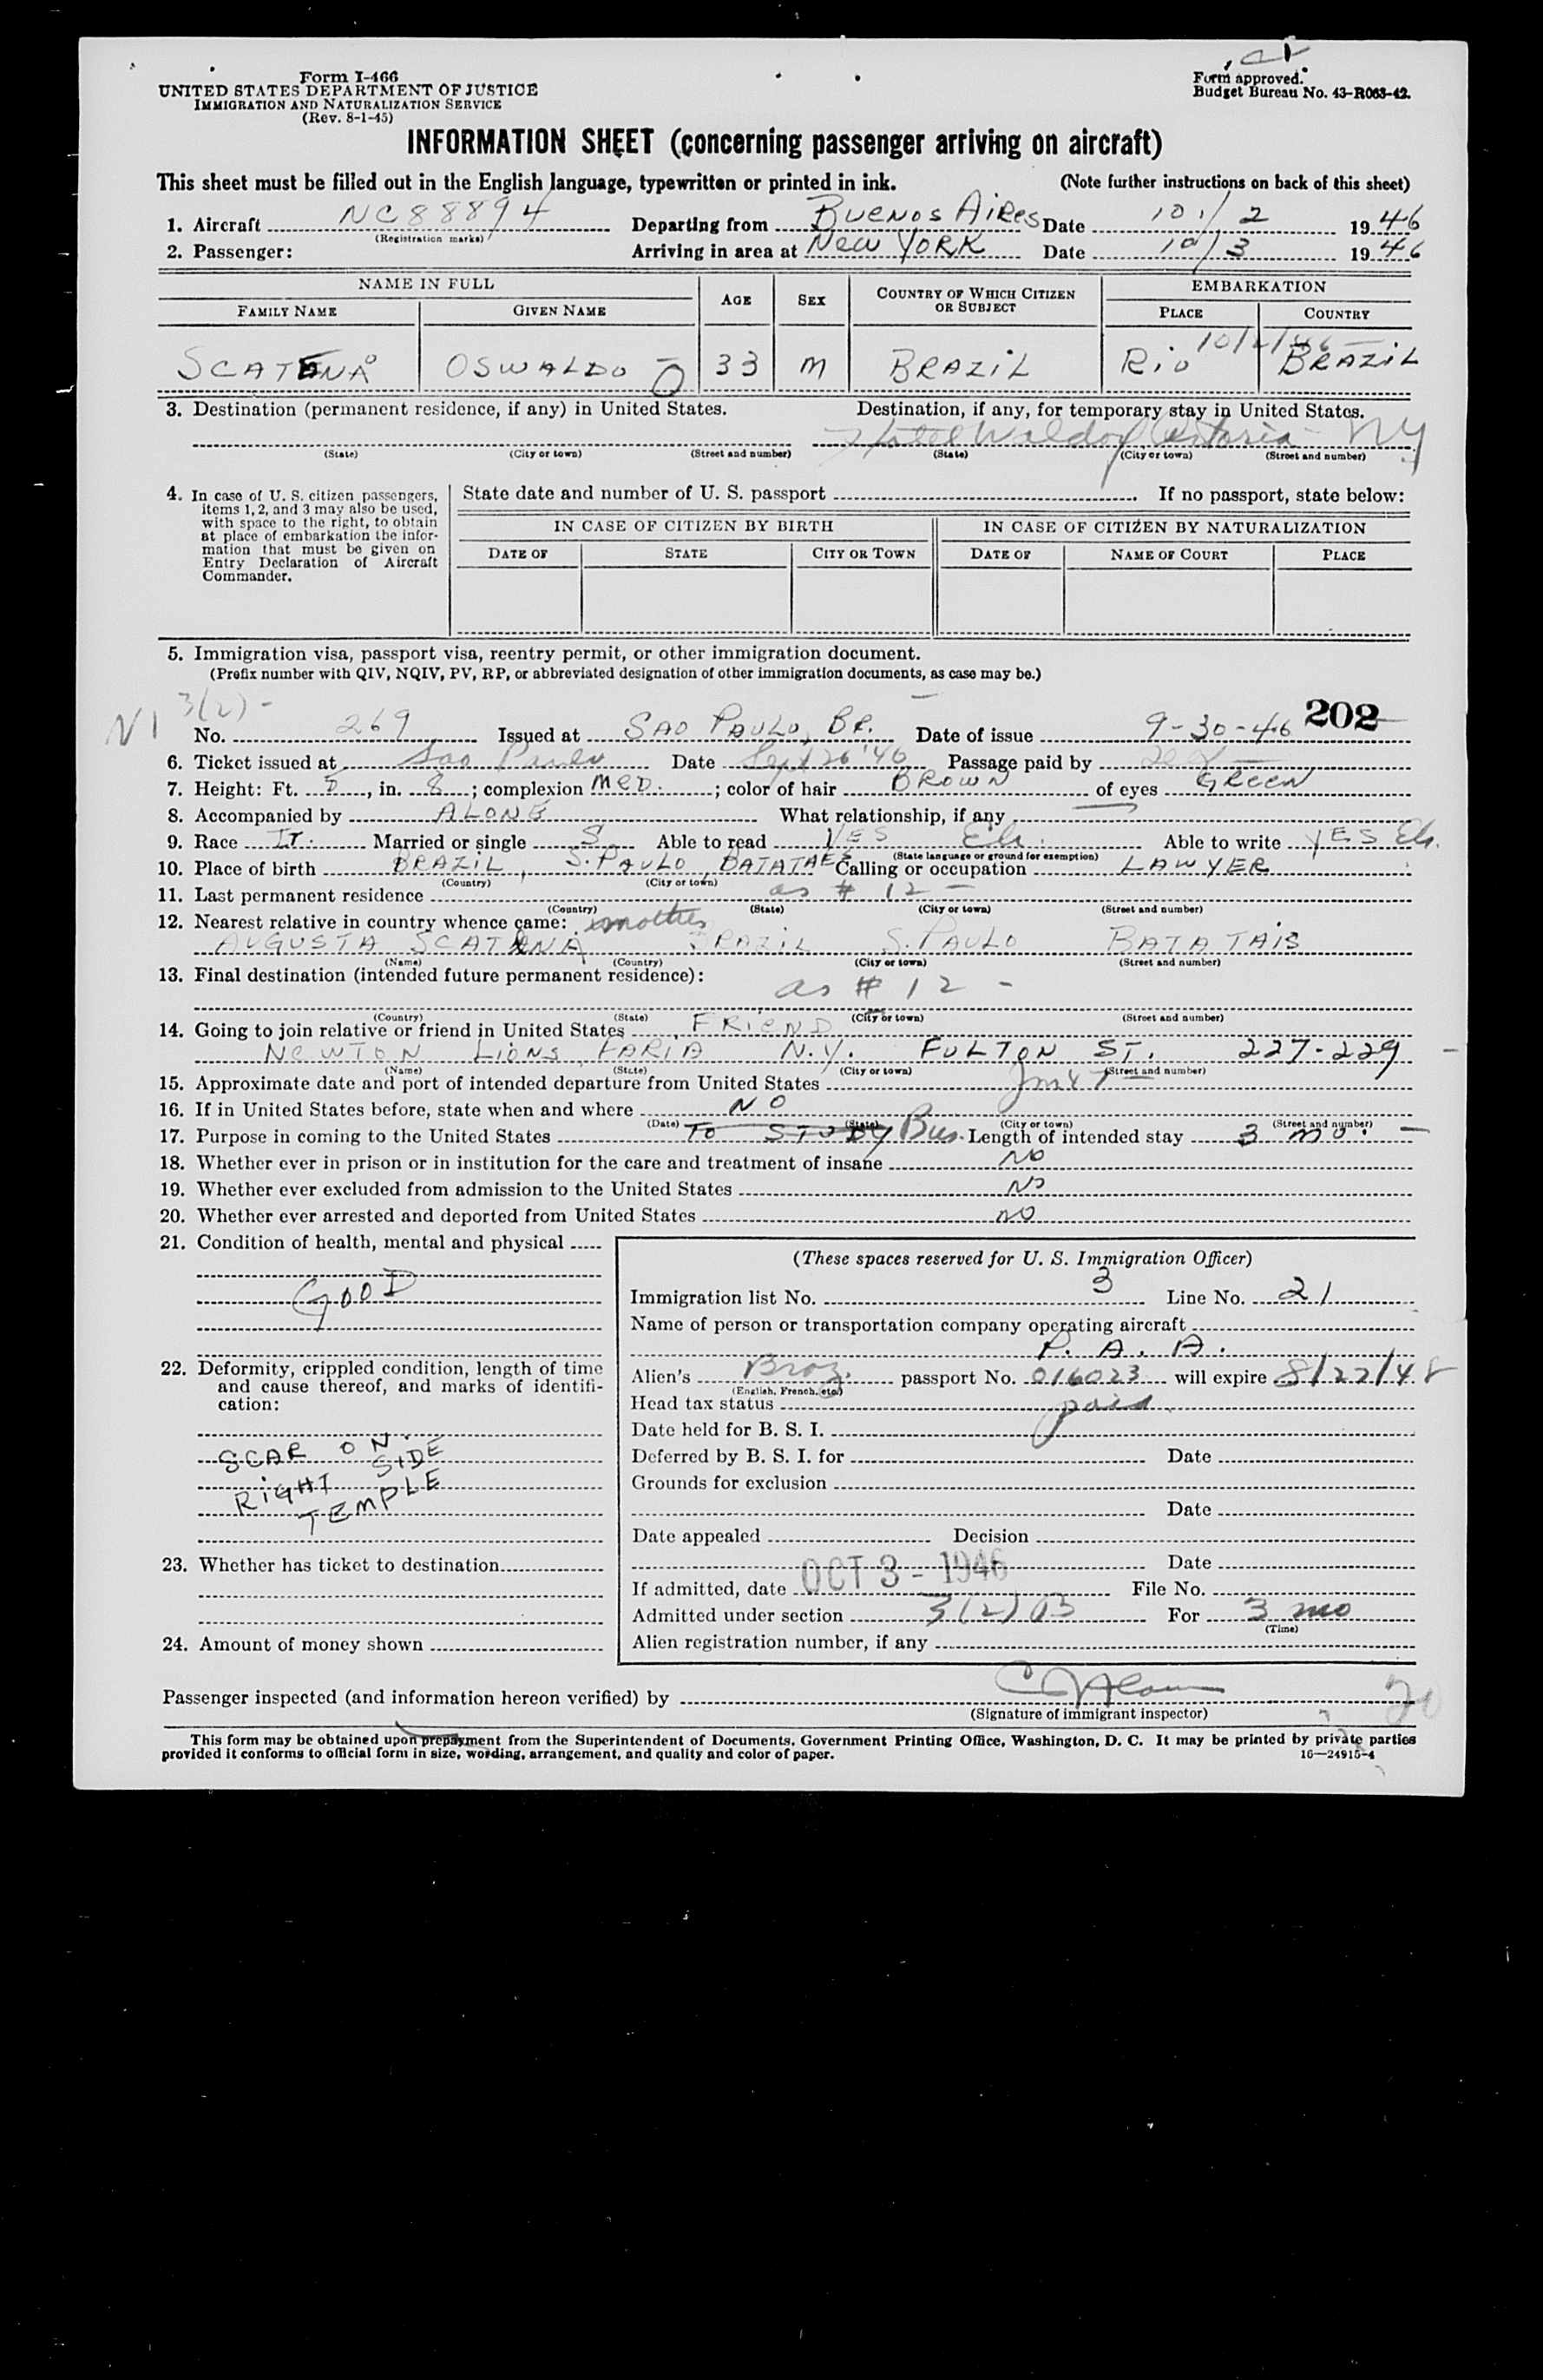 Form I-466
UNITED STATES DEPARTMENT OF JUSTICE
IMMIGRATION AND NATURALIZATION SERVICE
(Rev. 8-1-45)
Form approved.
Budget Bureau No. 43-R063-42.
INFORMATION SHEET (concerning passenger arriving on aircraft)
This sheet must be filled out in the English language, typewritten or printed in ink. (Note further instructions on back of this sheet)
1. Aircraft NC88894 Departing from BUENOS AIRES Date 10/2 1946
(Registration marks)
2. Passenger: Arriving in area at NEW YORK Date 10/3 1946
NAME IN FULL AGE SEX COUNTRY OF WHICH CITIZEN OR SUBJECT EMBARKATION
FAMILY NAME GIVEN NAME PLACE COUNTRY
SCATENA OSWALDO 33 M BRAZIL RIO BRAZIL
3. Destination (permanent residence, if any) in United States. Destination, if any, for temporary stay in United States.
Hotel Waldorf Astoria - NY
(State) (City or town) (Street and number) (State) (City or town) (Street and number)
4. In case of U. S. citizen passengers, items 1, 2, and 3 may also be used, with space to the right, to obtain at place of embarkation the information that must be given on Entry Declaration of Aircraft Commander.
State date and number of U. S. passport . If no passport, state below:
IN CASE OF CITIZEN BY BIRTH IN CASE OF CITIZEN BY NATURALIZATION
DATE OF STATE CITY OR TOWN DATE OF NAME OF COURT PLACE
5. Immigration visa, passport visa, reentry permit, or other immigration document.
(Prefix number with QIV, NQIV, PV, RP, or abbreviated designation of other immigration documents, as case may be.)
3(2) -
202
No. 269 Issued at SAO PAULO, BR. Date of issue 9-30-46
6. Ticket issued at Sao Paulo Date Sept 26 '46 Passage paid by
7. Height: Ft. 5, in. 8; complexion MED.; color of hair BROWN of eyes GREEN
8. Accompanied by ALONE What relationship, if any
9. Race IT. Married or single S Able to read YES Able to write YES
(State language or ground for exemption)
10. Place of birth BRAZIL, S. PAULO, BATATAES Calling or occupation LAWYER
(Country) (City or town)
11. Last permanent residence as # 12 -
(Country) (State) (City or town) (Street and number)
12. Nearest relative in country whence came: mother
AUGUSTA SCATENA BRAZIL S. PAULO BATATAIS
(Name) (Country) (City or town) (Street and number)
13. Final destination (intended future permanent residence): as # 12 -
(Country) (State) (City or town) (Street and number)
14. Going to join relative or friend in United States FRIEND
NEWTON LIONS FARIA N.Y. FULTON ST. 227-229
(Name) (State) (City or town) (Street and number)
15. Approximate date and port of intended departure from United States
16. If in United States before, state when and where NO
(Date) (State) (City or town) (Street and number)
17. Purpose in coming to the United States TO STUDY Bus. Length of intended stay 3 mo.
18. Whether ever in prison or in institution for the care and treatment of insane NO
19. Whether ever excluded from admission to the United States NO
20. Whether ever arrested and deported from United States NO
21. Condition of health, mental and physical
GOOD
22. Deformity, crippled condition, length of time and cause thereof, and marks of identification:
SCAR ON
RIGHT SIDE
TEMPLE
23. Whether has ticket to destination
24. Amount of money shown
(These spaces reserved for U. S. Immigration Officer)
Immigration list No. 3 Line No. 21
Name of person or transportation company operating aircraft
P. A. A.
Alien's Braz. passport No. 016023 will expire 8/22/48
(English, French, etc.)
Head tax status paid
Date held for B. S. I.
Deferred by B. S. I. for Date
Grounds for exclusion
Date
Date appealed Decision
Date
If admitted, date OCT 3 - 1946 File No.
Admitted under section 3(2) 03 For 3 mo
(Time)
Alien registration number, if any
Passenger inspected (and information hereon verified) by
(Signature of immigrant inspector)
20
This form may be obtained upon prepayment from the Superintendent of Documents, Government Printing Office, Washington, D. C. It may be printed by private parties
provided it conforms to official form in size, wording, arrangement, and quality and color of paper. 16—24915-4